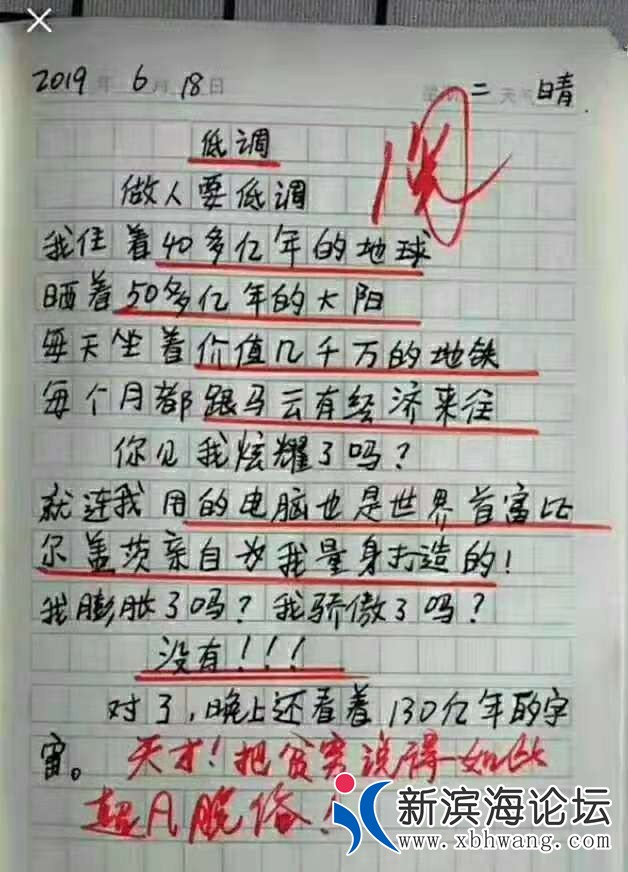 2019年 6月 18日 二 天气 晴
低调
阅
做人要低调
我住着40多亿年的地球
晒着50多亿年的太阳
每天坐着价值几千万的地铁
每个月都跟马云有经济来往
你见我炫耀了吗?
就连我用的电脑也是世界首富比
尔盖茨亲自为我量身打造的!
我膨胀了吗?我骄傲了吗?
没有!!!
对了,晚上还看着130亿年的宇
宙。天才!把贫穷说得如此
超凡脱俗!
新滨海论坛
www.xbhwang.com